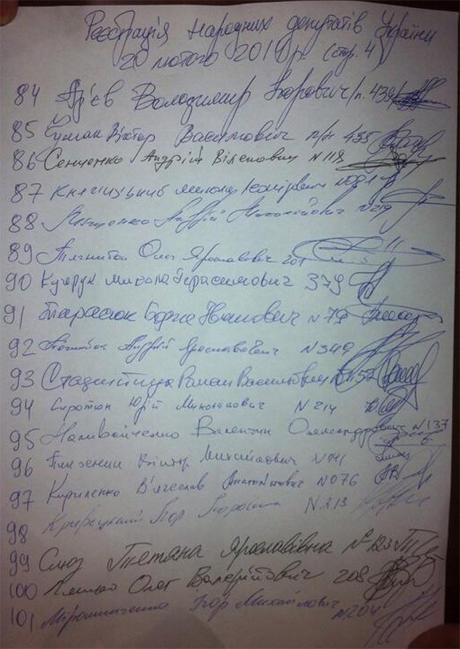 Реєстрація народних депутатів України
20 лютого 2014 р. (стор. 4)
84 Ар'єв Володимир Ігорович п. 439
85 Чумак Віктор Васильович п/н 435
86 Сенченко Андрій Віленович N 118
87 Княжицький Микола
88 Андрій Миколайович
89 Олег Ярославович 201
90 Кучерук Микола Герасимович 379
91 Тарасюк Борис Іванович N 79
92 Андрій Ярославович N 349
93 Роман Васильович
94 Сиротюк Юрій Миколайович N 214
95 Наливайченко Валентин Олександрович N 137
96 Пинзеник Віктор Михайлович N 041
97 Кириленко В'ячеслав Анатолійович N 076
98 Кривецький N 213
99 Тетяна Ярославівна N
100 Ляшко Олег Валерійович 208
101 Мірошниченко Ігор Михайлович N 204